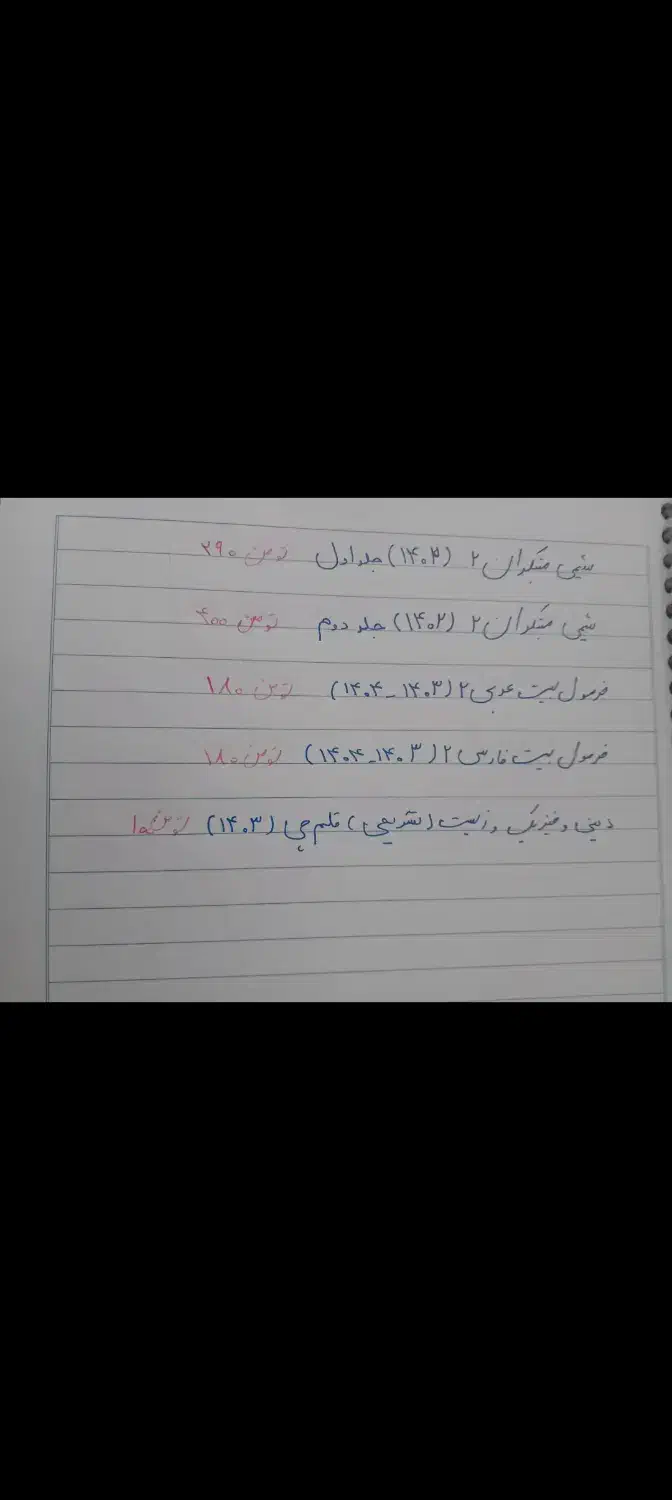 شیمی مبتکران ۲ (۱۴۰۲) جلد اول تومن ۲۹۰
شیمی مبتکران ۲ (۱۴۰۲) جلد دوم تومن ۴۰۰
فرمول بیست عربی ۲ (۱۴۰۳ - ۱۴۰۴) تومن ۱۸۰
فرمول بیست فارسی ۲ (۱۴۰۳ - ۱۴۰۴) تومن ۱۸۰
دینی و فیزیک و زیست (تشریحی) قلم چی (۱۴۰۳) تومن